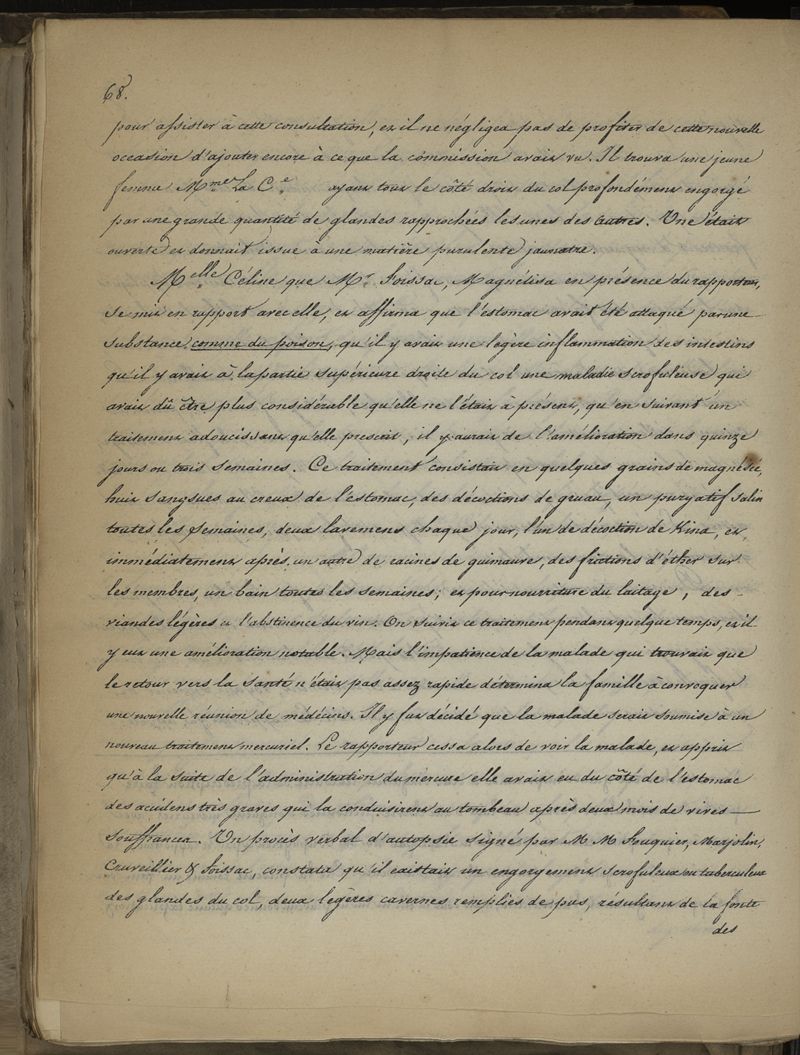 68.
pour assister à cette consultation, et il ne négligea pas de profiter de cette nouvelle
occasion d'ajouter encore à ce que la commission avait vu. Il trouva une jeune
femme Mme La Ce ayant tout le côté droit du col profondément engorgé
par une grande quantité de glandes rapprochées les unes des autres. Une était
ouverte et donnait issue à une matière purulente jaunatre.
Melle Céline que Mr. Foissac, Magnétisa en présence du rapporteur,
se mit en rapport avec elle, et affirma que l'estomac avait été attaqué par une
substance comme du poison, qu'il y avait une légère inflammation des intestins
qu'il y avait à la partie supérieure droite du col une maladie scrofuleuse qui
avait dû être plus considérable qu'elle ne l'était à présent, qu'en suivant un
traitement adoucissant qu'elle prescrit, il y aurait de l'amélioration dans quinze
jours ou trois semaines. Ce traitement consistait en quelques grains de magnésie,
huit sangsues au creux de l'estomac, des décoctions de gruau, un purgatif salin
toutes les semaines, deux lavemens chaque jour, l'un de décoction de Kina, et
immédiatement après, un autre de racines de guimauve, des frictions d'éther sur
les membres, un bain toutes les semaines; et pour nourriture du laitage, des
viandes légères et l'abstinence du vin. On suivit ce traitement pendant quelque temps, et il
y eut une amélioration notable. Mais l'impatience de la malade qui trouvait que
le retour vers la santé n'était pas assez rapide détermina la famille à convoquer
une nouvelle réunion de médécins. Il y fut décidé que la malade serait soumise à un
nouveau traitement mercuriel. Le rapporteur cessa alors de voir la malade, et apprit
qu'à la suite de l'administration du mercure elle avait eu du côté de l'estomac
des accidens très graves qui la conduisirent au tombeau après deux mois de vives
souffrances. Un procès verbal d'autopsie signé par M M Fouquier, Marjolin,
Cruveillier & Foissac, constata qu'il existait un engorgement scrofuleux ou tuberculeux
des glandes du col, deux légères cavernes remplies de pus, résultant de la fonte
des